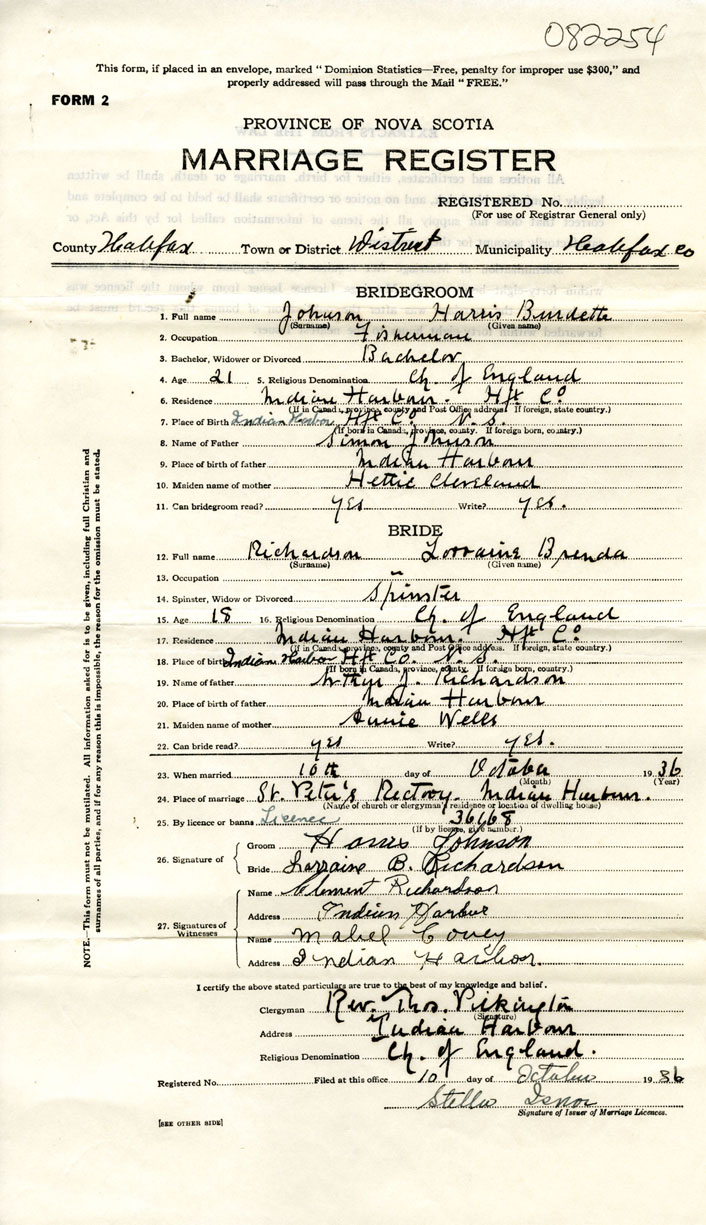 082254
This form, if placed in an envelope, marked "Dominion Statistics—Free, penalty for improper use $300," and
properly addressed will pass through the Mail "FREE."
FORM 2
PROVINCE OF NOVA SCOTIA
MARRIAGE REGISTER
REGISTERED No.
(For use of Registrar General only)
County Halifax Town or District District Municipality Halifax Co
BRIDEGROOM
1. Full name Johnson Harris Burdette
(Surname) (Given name)
2. Occupation Fisherman
3. Bachelor, Widower or Divorced Bachelor
4. Age 21 5. Religious Denomination Ch. of England
6. Residence Indian Harbour. Hfx Co
(If in Canada, province, county and Post Office address. If foreign, state country.)
7. Place of Birth Indian Harbor Hfx Co. N. S.
(If born in Canada, province, county. If foreign born, country.)
8. Name of Father Simon Johnson
9. Place of birth of father Indian Harbour
10. Maiden name of mother Hettie Cleveland
11. Can bridegroom read? yes Write? yes.
BRIDE
12. Full name Richardson Lorraine Brenda
(Surname) (Given name)
13. Occupation
14. Spinster, Widow or Divorced Spinster
15. Age 18 16. Religious Denomination Ch. of England
17. Residence Indian Harbour. Hfx Co
(If in Canada, province, county and Post Office address. If foreign, state country.)
18. Place of birth Indian Harbor Hfx Co. N. S.
(If born in Canada, province, county. If foreign born, country.)
19. Name of father Arthur J. Richardson
20. Place of birth of father Indian Harbour
21. Maiden name of mother Annie Wells
22. Can bride read? yes Write? yes.
23. When married 10th day of October 1936
(Month) (Year)
24. Place of marriage St. Peter's Rectory. Indian Harbour.
(Name of church or clergyman's residence or location of dwelling house)
25. By licence or banns Licence 36168
(If by license, give number.)
26. Signature of
Groom Harris Johnson
Bride Lorraine B. Richardson
27. Signatures of Witnesses
Name Clement Richardson
Address Indian Harbor
Name Mabel Covey
Address Indian Harbor.
I certify the above stated particulars are true to the best of my knowledge and belief.
Clergyman Rev. Thos. Pilkington
(Signature)
Address Indian Harbour
Religious Denomination Ch. of England.
Registered No. Filed at this office 10 day of October 1936
Stella Isnor
Signature of Issuer of Marriage Licences.
[SEE OTHER SIDE]
NOTE.—This form must not be mutilated. All information asked for is to be given, including full Christian and
surnames of all parties, and if for any reason this is impossible, the reason for the omission must be stated.